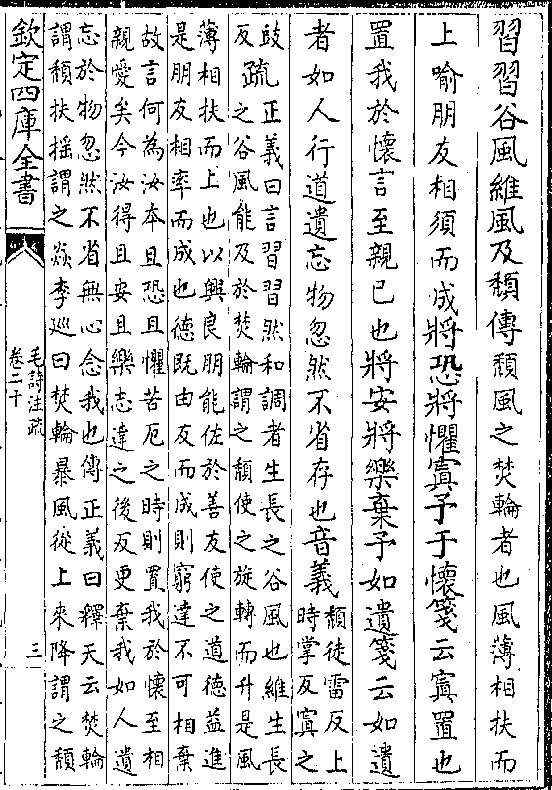 習習谷風維風及頽傳頽風之焚輪者也風薄相扶而
上喻朋友相須而成將恐將懼寘予于懷箋云寘置也
置我於懷言至親已也將安將樂棄予如遺箋云如遺
者如人行道遺忘物忽然不省存也音義
頽徒雷反上
時掌反寘之
豉
反
疏
正義曰言習習然和調者生長之谷風也維生長
之谷風能及於焚輪謂之頽使之旋轉而升是風
薄相扶而上也以興良朋能佐於善友使之道德益進
是朋友相率而成也德既由友而成則窮達不可相棄
故言何為汝本且恐且懼苦厄之時則置我於懷至相
親愛矣今汝得且安且樂志達之後反更棄我如人遺
忘於物忽然不省無心念我也傳正義曰釋天云焚輪
謂頽扶揺謂之焱李廵曰焚輪暴風從上來降謂之頽
欽定四庫全書
毛詩注疏
卷二十
三